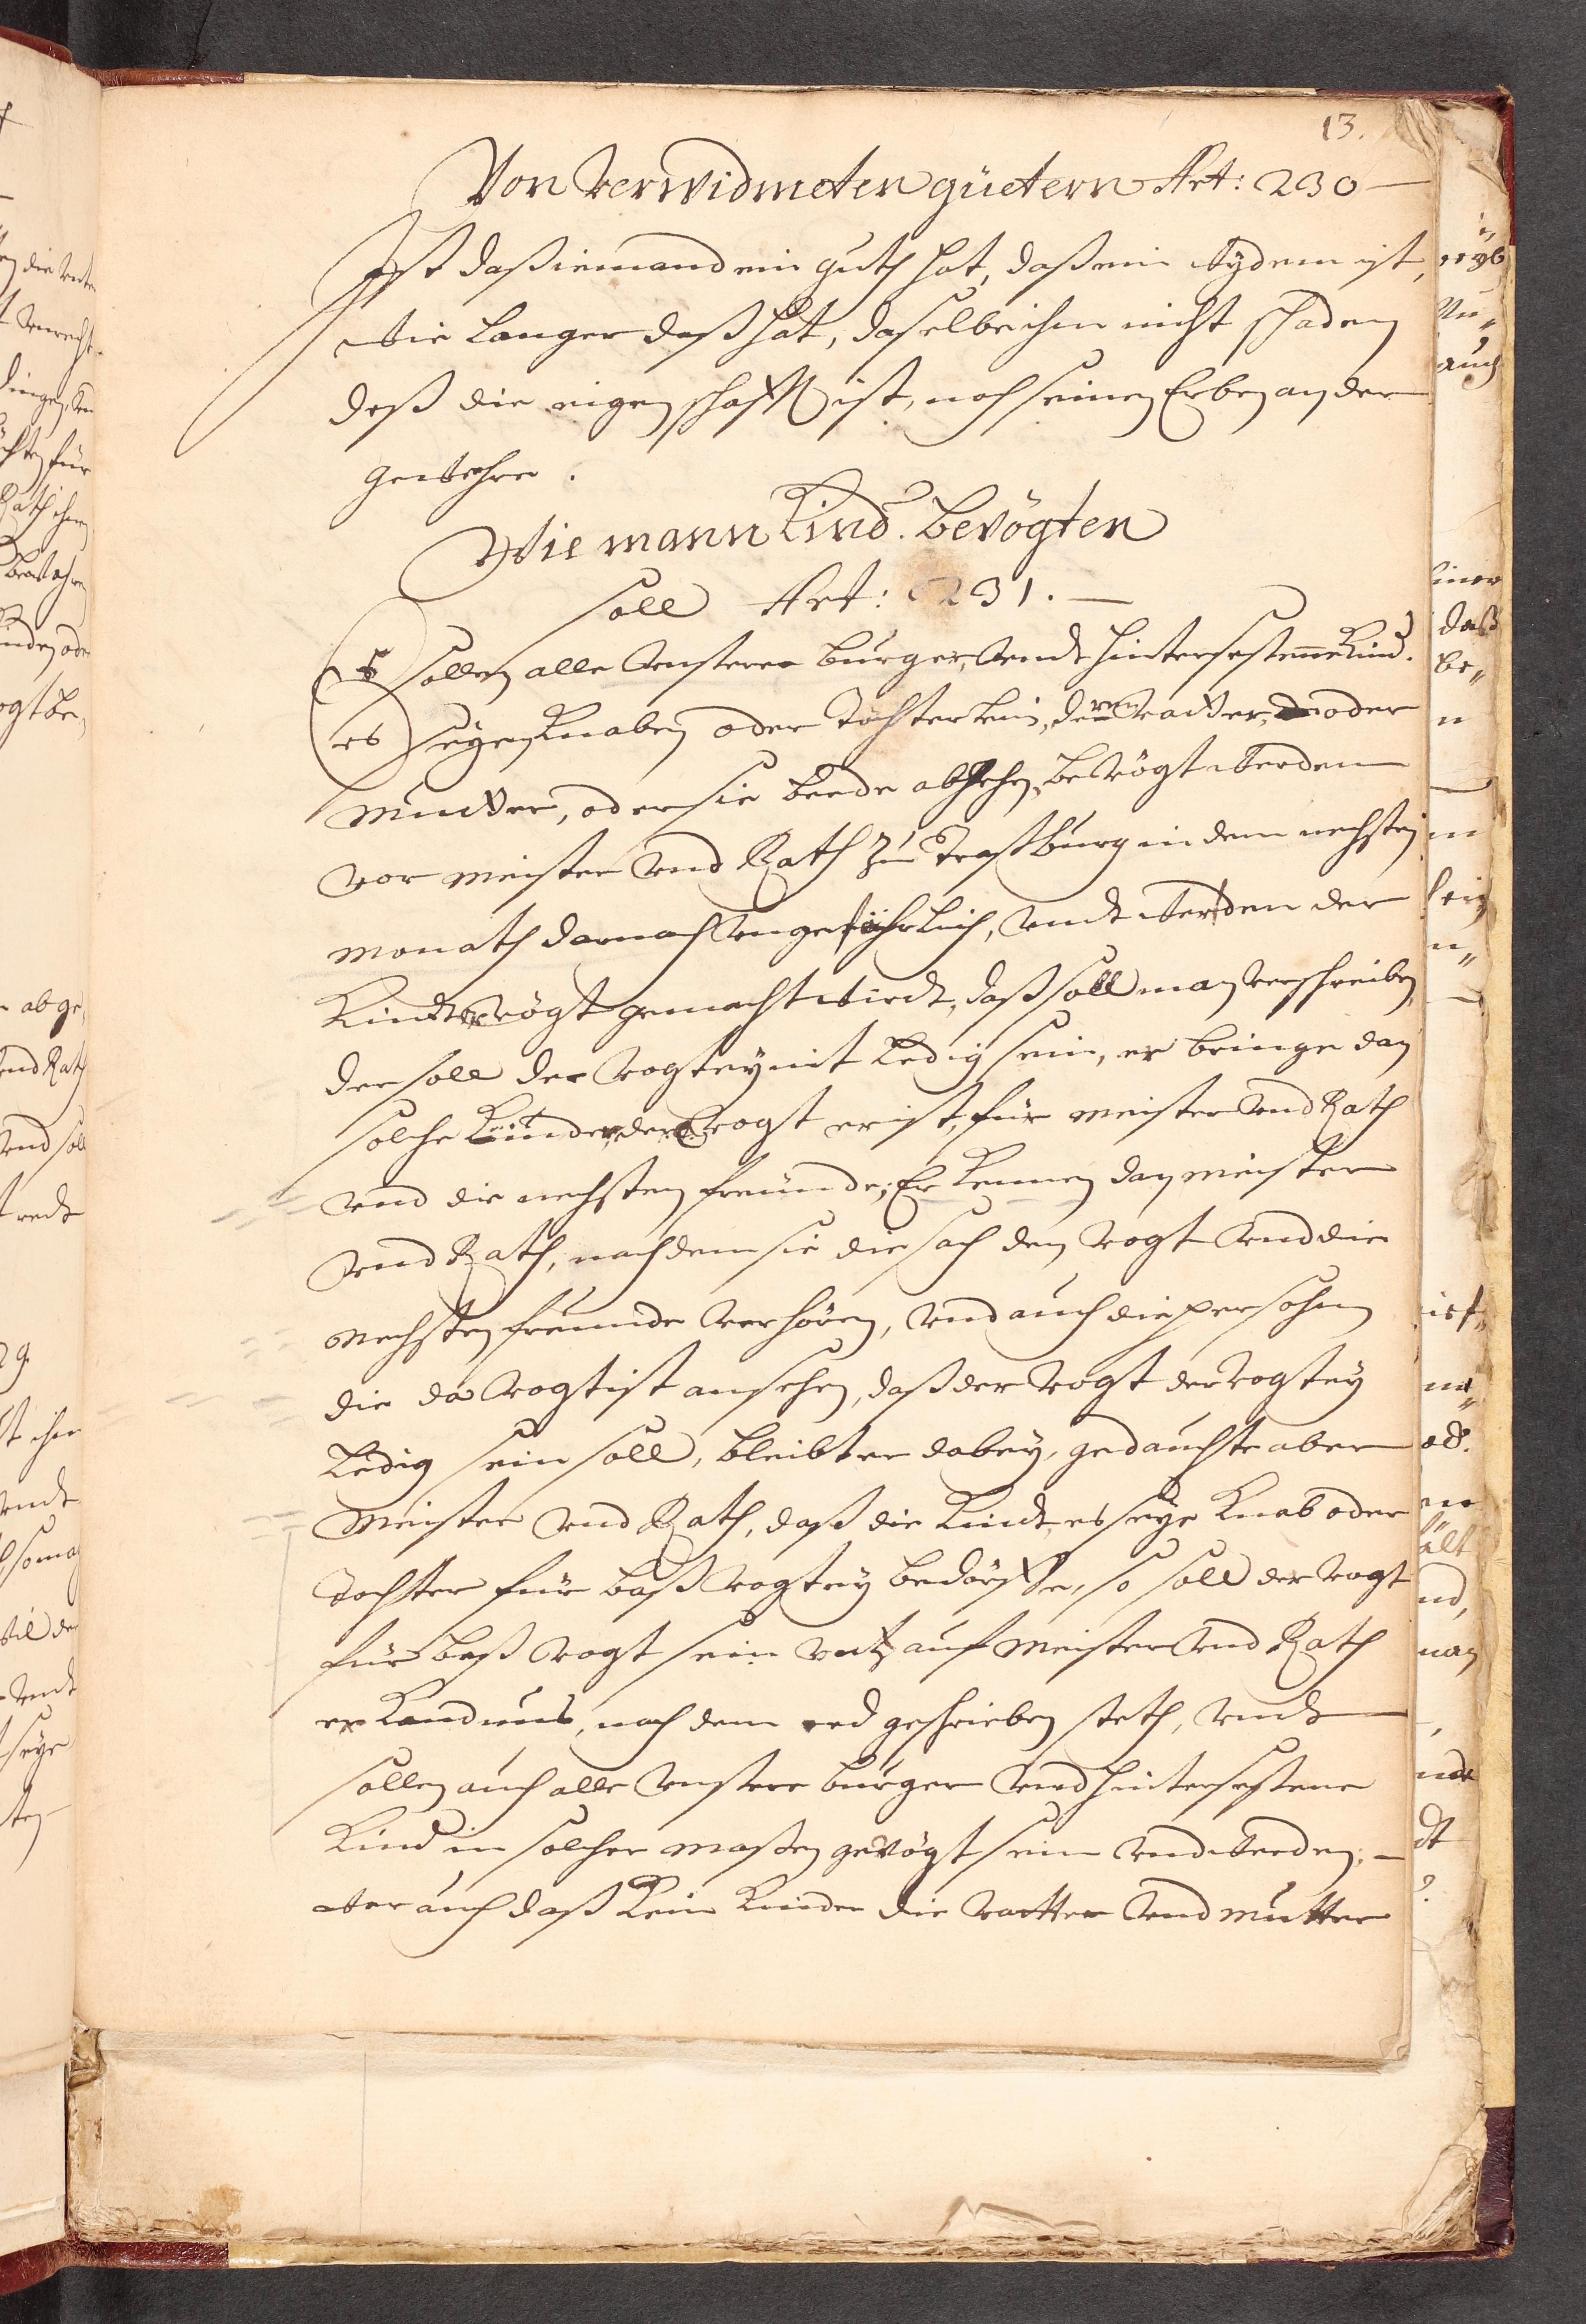 13.
Von Verwidmeten güetern Art: 230
Ist daß iemand ein guth hat, daß ein wydem ist,
wie langer daß hat, daselbe ihm nicht schaden
deß die eigenschafft ist, noch seinen Erben an der
gewehre.
Wie mann Kind. bevögten
soll Art: 231.
Es sollen alle Unsterer burger, Undt hintersestene Kind.
es seyen Knaben oder Töchterlein, deren Vatter, oder
Mutter, oder sie beede abgehen, bevögt werden
vor meister Und Rath zu Straßburg in dem nechsten
monath darnach Ungefährlich, Undt werden der
Kindt Vögt gemacht wirdt, daß soll man verschreiben,
der soll der Vogtey nit Ledig sein, er bringe dan
solche Kinder, deren Vogt er ist, für meister Und Rath
Und die nechsten freünde, Erkennen dan meister
Und Rath, nachdem sie die sach den Vogt Und die
nechsten freunde Verhören, Und auch die persohn
die da Vogt ist ansehen, daß der Vogt der Vogtey
Ledig sein soll, bleibt er dabey, gedauchte aber
Meister Und Rath, daß die Kindt, es seye Knab oder
Tochter für baß Vogtey bedörffe, so soll der Vogt
für baß Vogt sein Untz auf Meister Und Rath
erkandnus, nach dem red geschrieben steth, Undt
sollen auch alle Unstere burger Und hintersestene
Kind in solcher maßen gevögt sein Und werden,
wer auch daß Kein Kinder die Vatter Und mutter